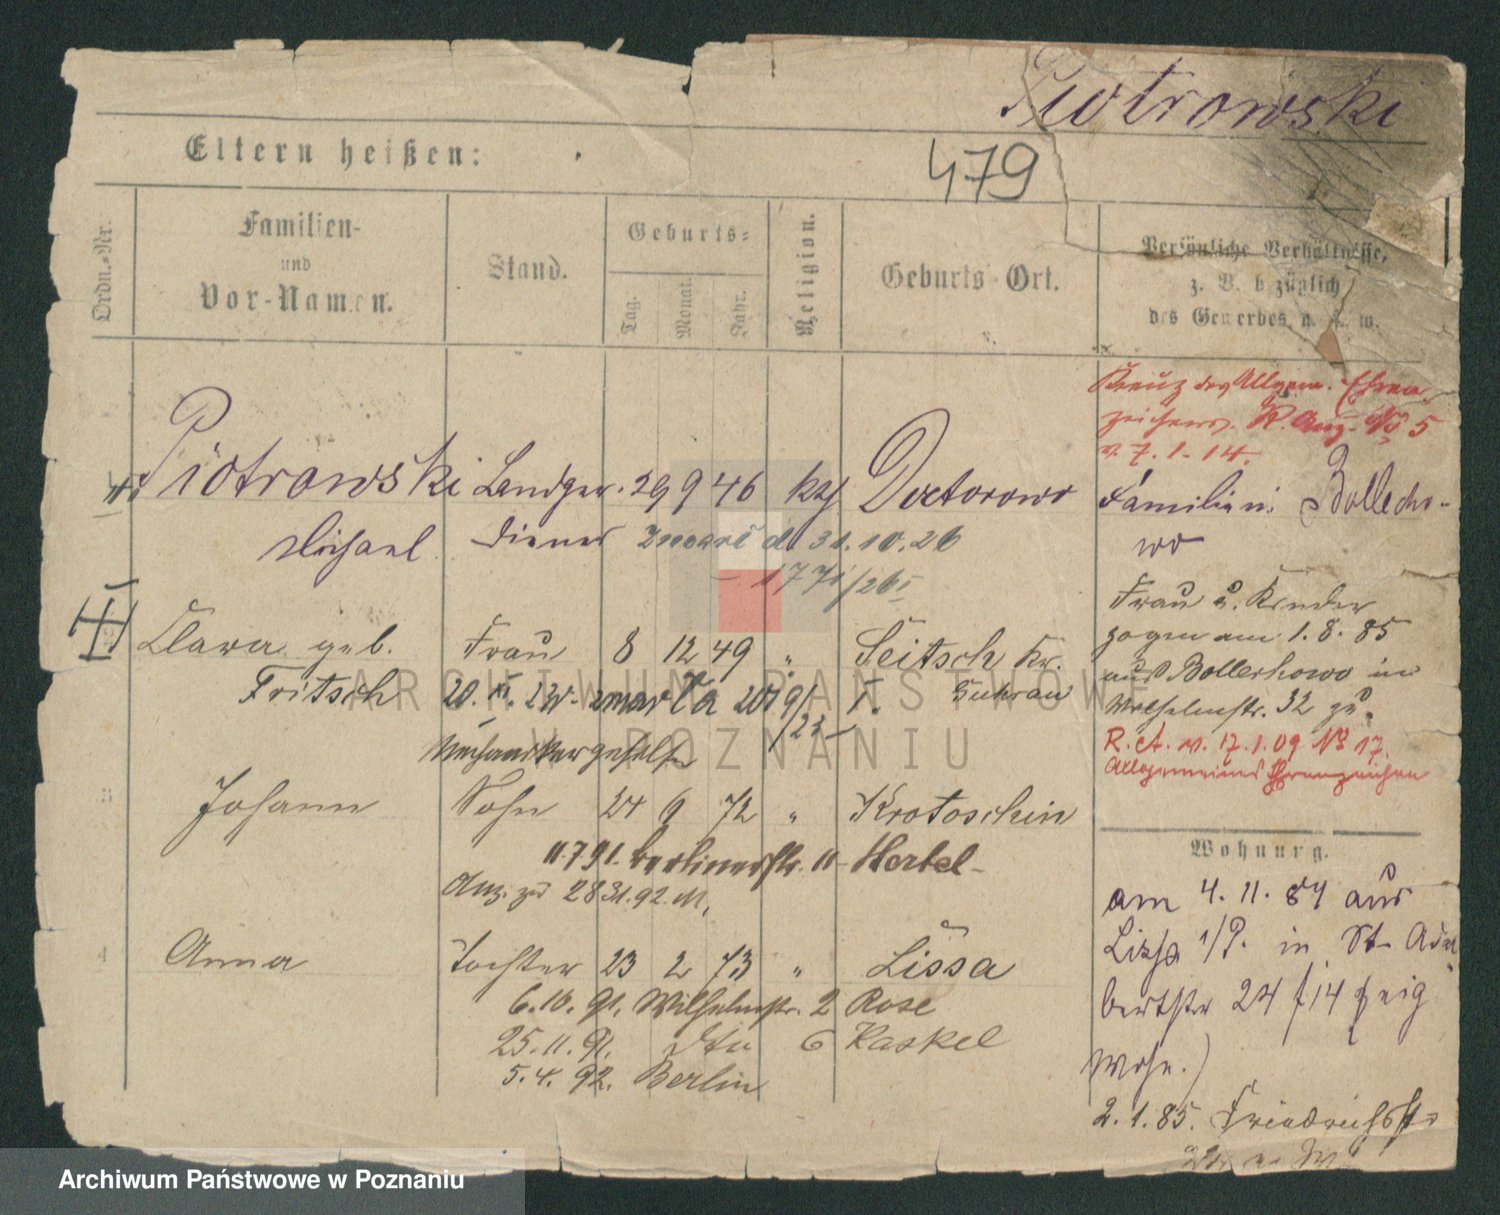 Piotrowski
Eltern heißen:
479
Ordn.-Nr.
Familien-
und
Vor-Namen.
Stand.
Geburts-
Tag.
Monat.
Jahr.
Religion.
Geburts-Ort.
Persönliche Verhältnisse,
z. B. bezüglich
des Gewerbes, u. s. w.
Kreuz des Allgem. Ehren
zeichens. R. Anz. No 5
v. 7. 1. 14.
Piotrowski Landger. 29 9 46 kz Doctorowo
Michael Diener
d. 31.10.26
Familie in Bollecho-
wo
Frau u. Kinder
zogen am 1. 8. 85
aus Bollechowo in
Wilhelmstr. 32 zu.
Clara geb. Frau 8 12 49 " Seitsch Kr.
Fritsch
Guhrau
R. A. v. 17. 1. 09 No 17.
Allgemeines Ehrenzeichen
3
Johann Sohn 24 9 72 " Krotoschin
11.7 91. Berlinerstr. 11 Hertel
Wohnung.
am 4. 11. 84 aus
Lissa i/P. in St. Adal
bertstr 24
Wohn.)
2. 1. 85. Friedrichstr
4
Anna Tochter 23 2 73 " Lissa
6. 10. 91. Wilhelmstr. 2 Rose
25. 11. 91. dto 6 Kaskel
5. 4. 92. Berlin
ARCHIWUM PAŃSTWOWE
W POZNANIU
Archiwum Państwowe w Poznaniu